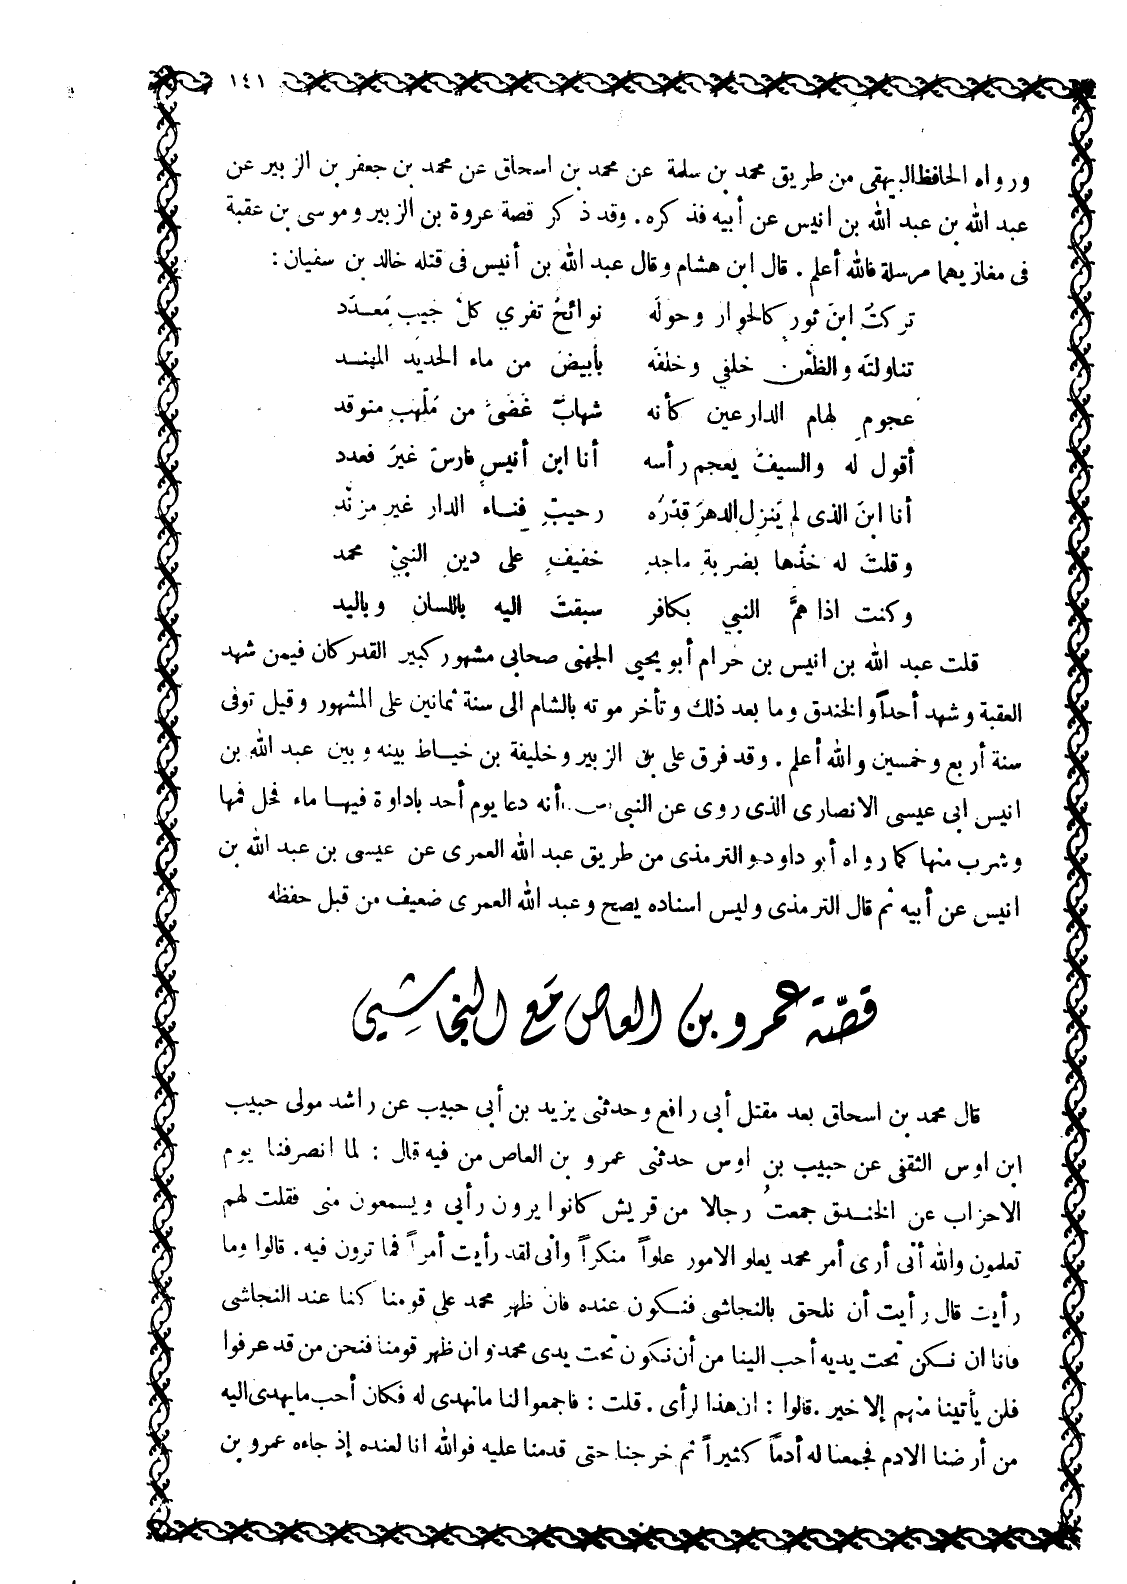 ١٤١
ورواه الحافظ البيهقى من طريق محمد بن سلمة عن محمد بن اسحاق عن محمد بن جعفر بن الزبير عن
عبد الله بن عبد الله بن انيس عن أبيه فذكره. وقد ذكر قصة عروة بن الزبير وموسى بن عقبة
فى مغازيهما مرسلة فالله أعلم. قال ابن هشام وقال عبد الله بن أنيس فى قتله خالد بن سفيان:
تركتُ ابنَ ثور كالحوار وحوله نوائحُ تفري كلَّ جيب مَعدَّد
تناولته والظعْن خلفي وخلفه بأبيض من ماء الحديد المهند
عجومٍ لهام الدارعين كأنه شهابُ غَضىً من مَلْهب متوقد
أقول له والسيفُ يعجم رأسه أنا ابن أنيس فارسٌ غيرَ قعدد
أنا ابنَ الذى لم يَنزِل الدهرَ قِدْرَه رحيبُ فِناء الدار غير مزنَّد
وقلت له خُذها بضربةِ ماجدٍ خفيفٍ على دين النبيْ محمد
وكنت اذا همَّ النبي بكافر سبقتُ اليه باللسان وباليد
قلت عبد الله بن انيس بن حرام أبو يحيى الجهنى صحابى مشهور كبير القدر كان فيمن شهد
العقبة وشهد أحداً والخندق وما بعد ذلك وتأخر موته بالشام الى سنة ثمانين على المشهور وقيل توفى
سنة أربع وخمسين والله أعلم. وقد فرق على بن الزبير وخليفة بن خياط بينه وبين عبد الله بن
انيس ابى عيسى الانصارى الذى روى عن النبى ص أنه دعا يوم أحد باداوة فيها ماء فحل فمها
وشرب منها كما رواه أبو داود والترمذى من طريق عبد الله العمرى عن عيسى بن عبد الله بن
انيس عن أبيه ثم قال الترمذى وليس اسناده يصح وعبد الله العمرى ضعيف من قبل حفظه
قصّة عمرو بن العاص مَع النجاشِيي
قال محمد بن اسحاق بعد مقتل أبى رافع وحدثنى يزيد بن أبى حبيب عن راشد مولى حبيب
ابن اوس الثقفى عن حبيب بن اوس حدثنى عمرو بن العاص من فيه قال: لما انصرفنا يوم
الاحزاب عن الخندق جمعتُ رجالا من قريش كانوا يرون رأيى ويسمعون منى فقلت لهم
تعلمون والله أنى أرى أمر محمد يعلو الامور علواً منكراً وأنى لقد رأيت أمراً فما ترون فيه. قالوا وما
رأيت قال رأيت أن نلحق بالنجاشى فنكون عنده فان ظهر محمد على قومنا كنا عند النجاشى
فانا ان نكن تحت يديه أحب الينا من أن نكون تحت يدى محمد وان ظهر قومنا فنحن من قد عرفوا
فلن يأتينا منهم إلا خير. قالوا: ان هذا لرأى. قلت: فاجمعوا لنا ما نهدى له فكان أحب ما يهدى اليه
من أرضنا الادم فجمعنا له أدماً كثيراً ثم خرجنا حتى قدمنا عليه فوالله انا لعنده إذ جاءه عمرو بن